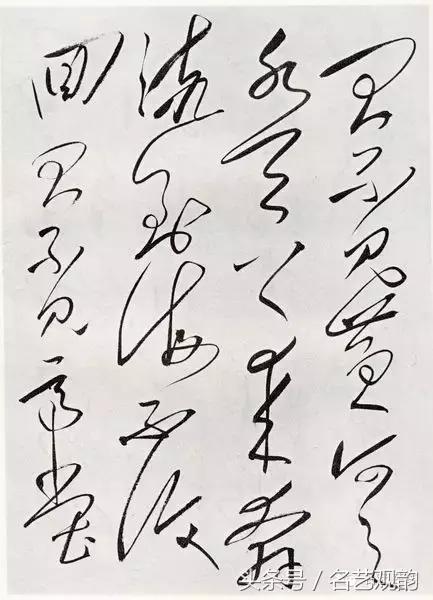 君不見黃河之
水天上來奔
流到海不復
回君不見高堂
头条号 / 名艺观韵